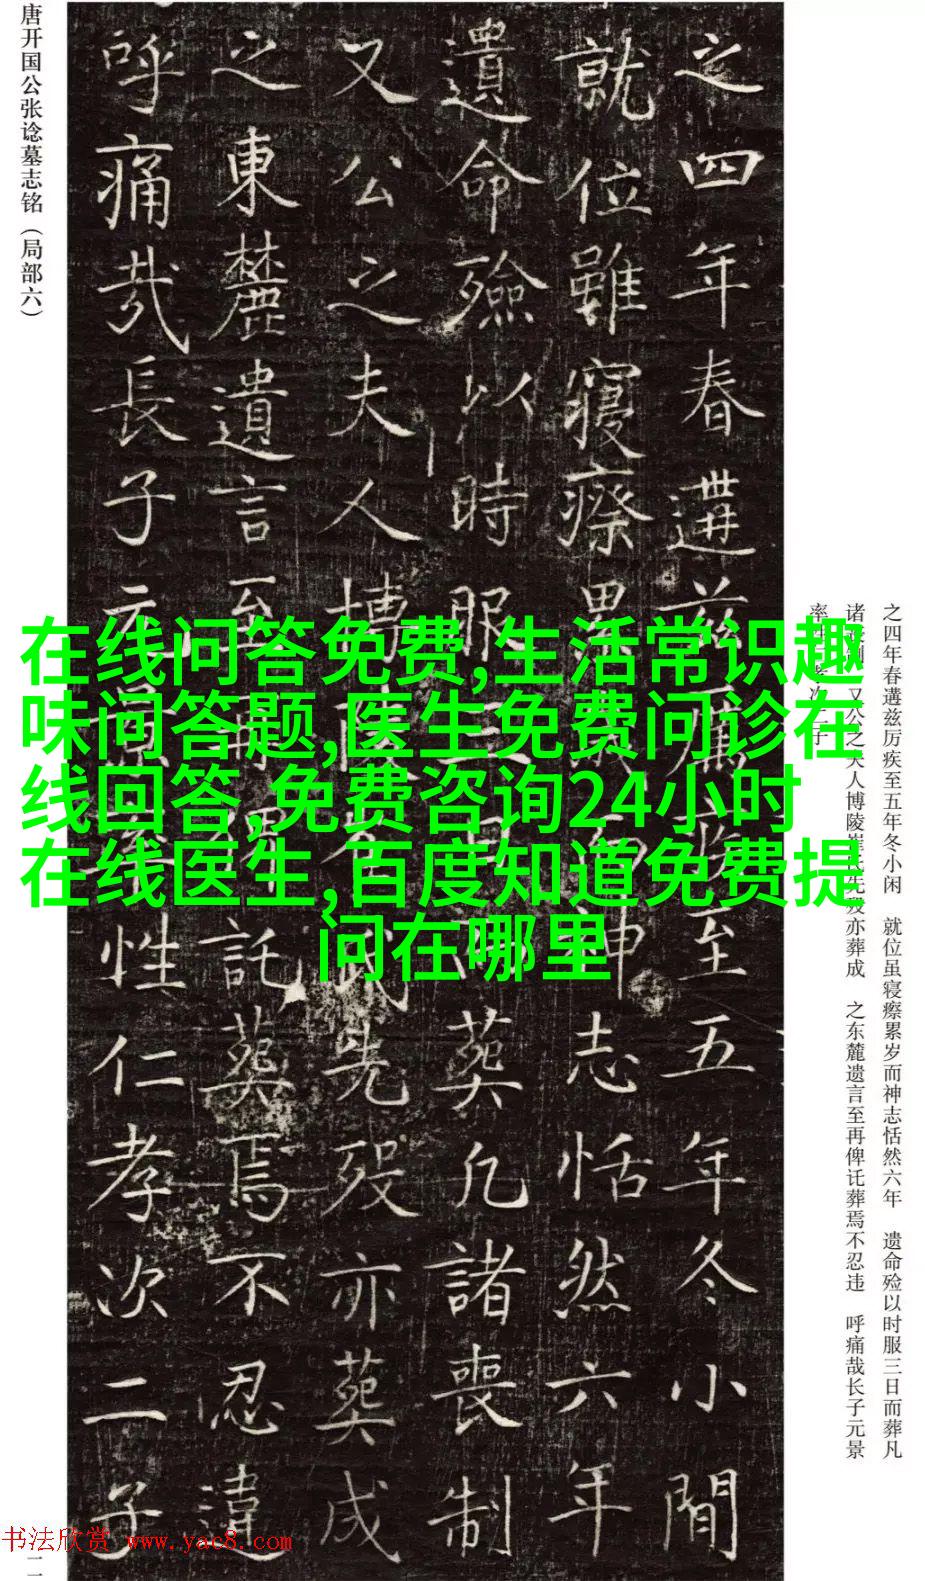 之四年春遘兹厉疾至五年冬小闲　就位虽寝瘵累岁而神志恬然六年　遗命殓以时服三日而葬凡
诸丧制　又公之夫人博陵崔氏先殁亦葬成　之东麓遗言至再俾讬葬焉不忍违　呼痛哉长子元景
率次二子
之四年春遘兹至五年冬小間
就位雖寢瘵累神志恬然六年
遺命殮以時服葬凡諸喪制
又公之夫人博先歿亦葬成
之東麓遺言至託葬焉不忍違
呼痛哉長子元性仁孝次二子
唐开国公张谂墓志铭（局部六）
在线问答免费,生活常识趣
味问答题,医生免费问诊在
线回答,免费咨询24小时
在线医生,百度知道免费提
问在哪里
书法欣赏 www.yac8.com
二